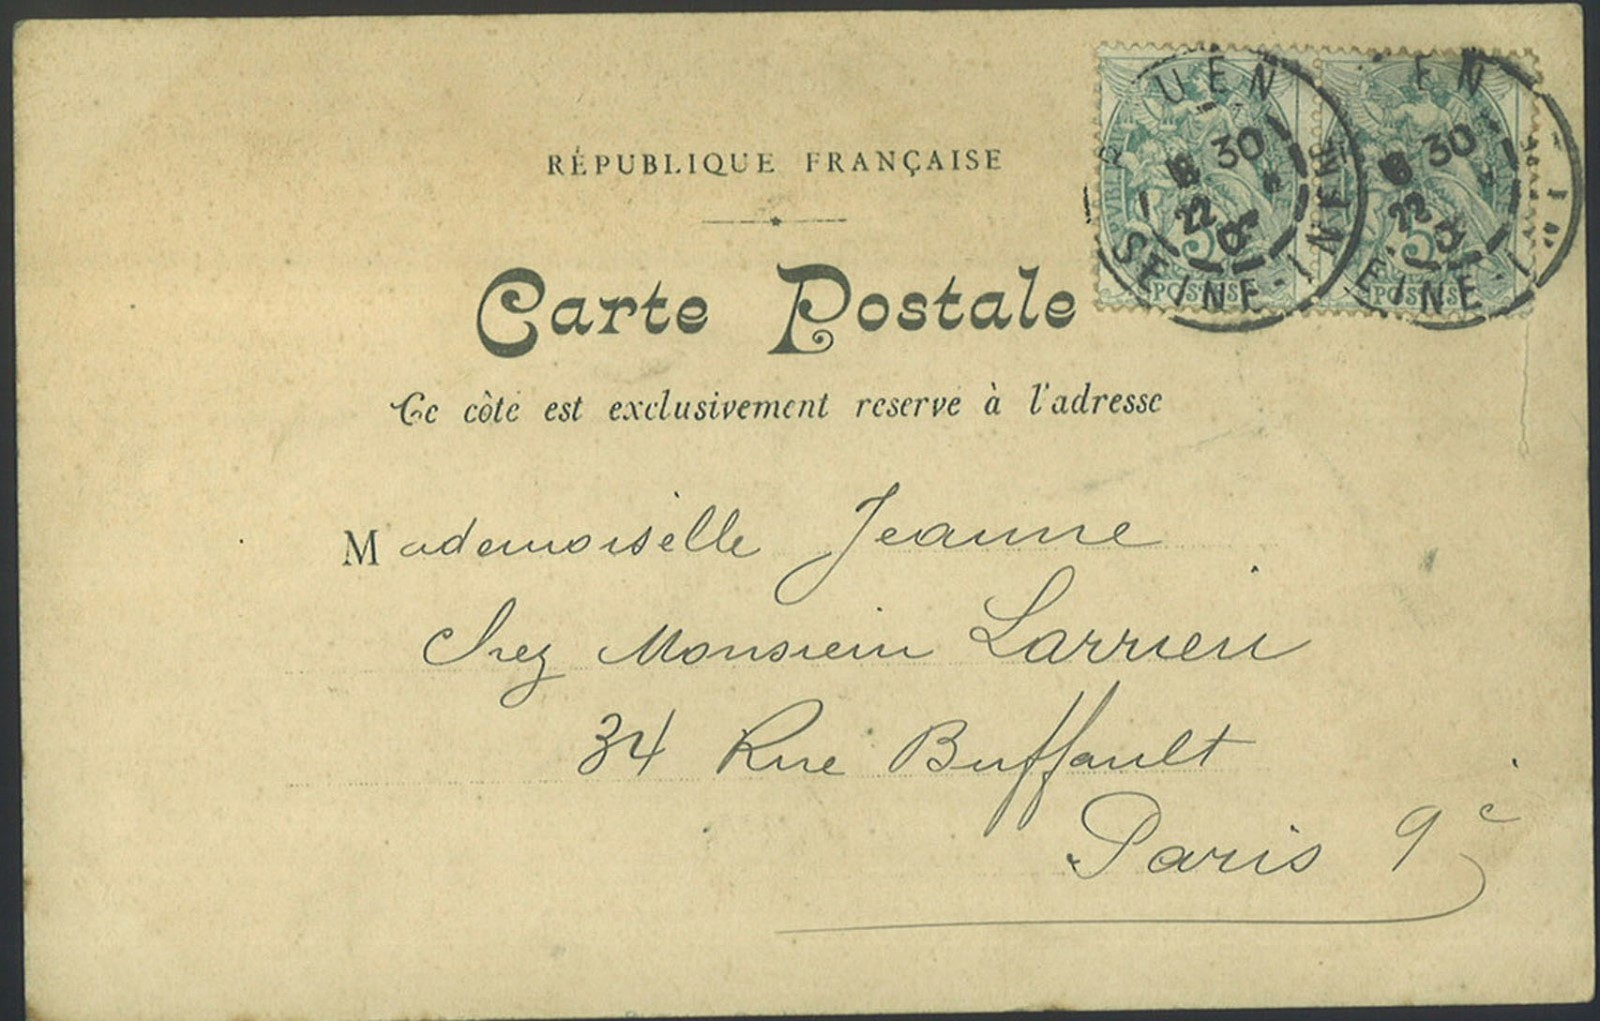 RÉPUBLIQUE FRANÇAISE
Carte Postale
Ce côté est exclusivement reservé à l'adresse
Mademoiselle Jeanne
Chez Monsieur Larrieu
34 Rue Buffault
Paris 9e
UEN
30
22
SEINE - INFRE
5
POSTES
EN
30
22
EINE
5
POSTES